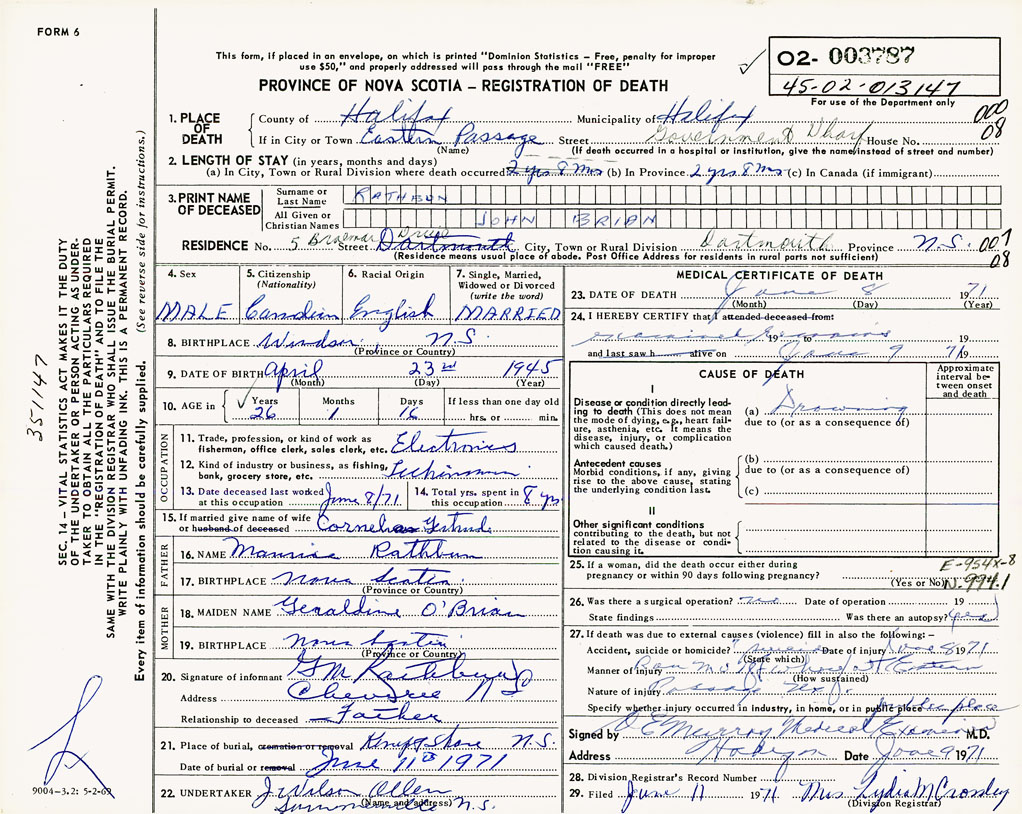 FORM 6
This form, if placed in an envelope, on which is printed "Dominion Statistics – Free, penalty for improper
use $50," and properly addressed will pass through the mail "FREE"
✓
02- 003787
45-02-013147
For use of the Department only
PROVINCE OF NOVA SCOTIA – REGISTRATION OF DEATH
1. PLACE OF DEATH
County of Halifax Municipality of Halifax 000
If in City or Town Eastern Passage Street Government Wharf House No. 08
(Name) (If death occurred in a hospital or institution, give the name instead of street and number)
2. LENGTH OF STAY (in years, months and days)
(a) In City, Town or Rural Division where death occurred 2 yrs 8 Mos (b) In Province 2 yrs. 8 Mos (c) In Canada (if immigrant)
3. PRINT NAME OF DECEASED
Surname or Last Name RATHBUN
All Given or Christian Names JOHN BRIAN
RESIDENCE No. 5 Braemar Drive Street Dartmouth City, Town or Rural Division Dartmouth Province N.S. 007
(Residence means usual place of abode. Post Office Address for residents in rural parts not sufficient) 08
4. Sex
MALE
5. Citizenship (Nationality)
Canadian
6. Racial Origin
English
7. Single, Married, Widowed or Divorced (write the word)
MARRIED
8. BIRTHPLACE Windsor N.S.
(Province or Country)
9. DATE OF BIRTH April 23rd 1945
(Month) (Day) (Year)
10. AGE in Years Months Days If less than one day old
✓ 26 1 16 hrs. or min.
OCCUPATION
11. Trade, profession, or kind of work as
fisherman, office clerk, sales clerk, etc. Electronics
12. Kind of industry or business, as fishing,
bank, grocery store, etc.
13. Date deceased last worked at this occupation June 8/71
14. Total yrs. spent in this occupation 8 yrs
15. If married give name of wife
or husband of deceased Cornelia Gertrude
FATHER
16. NAME Maurice Rathbun
17. BIRTHPLACE Nova Scotia
(Province or Country)
MOTHER
18. MAIDEN NAME Geraldine O'Brian
19. BIRTHPLACE Nova Scotia
(Province or Country)
20. Signature of informant G M Rathbun
Address Cheverie N S
Relationship to deceased Father
21. Place of burial, cremation or removal Kempt Shore N.S.
Date of burial or removal June 11th 1971
22. UNDERTAKER J. Wilson Allen
(Name and address) Summerville N.S.
MEDICAL CERTIFICATE OF DEATH
23. DATE OF DEATH June 8 1971
(Month) (Day) (Year)
24. I HEREBY CERTIFY that I attended deceased from:
examined remains 19 to
and last saw h alive on June 9 71 19
CAUSE OF DEATH
Approximate interval between onset and death
I
Disease or condition directly leading to death (This does not mean the mode of dying, e.g., heart failure, asthenia, etc. It means the disease, injury, or complication which caused death.)
(a) Drowning
due to (or as a consequence of)
Antecedent causes
Morbid conditions, if any, giving rise to the above cause, stating the underlying condition last.
(b)
due to (or as a consequence of)
(c)
II
Other significant conditions contributing to the death, but not related to the disease or condition causing it.
25. If a woman, did the death occur either during
pregnancy or within 90 days following pregnancy?
(Yes or No)
E-954X-8
N.994.1
26. Was there a surgical operation? no Date of operation 19
State findings Was there an autopsy? yes
27. If death was due to external causes (violence) fill in also the following: –
Accident, suicide or homicide? Date of injury June 8 1971
(State which)
Manner of injury Ran MC off wharf at Eastern
(How sustained)
Nature of injury Passage
Specify whether injury occurred in industry, in home, or in public place public place
Signed by D E Murray Medical Examiner M.D.
Address Halifax Date June 9 1971
28. Division Registrar's Record Number
29. Filed June 11 1971 Mrs Lydia M Crossley
(Division Registrar)
SEC. 14 – VITAL STATISTICS ACT MAKES IT THE DUTY
OF THE UNDERTAKER OR PERSON ACTING AS UNDERTAKER
TO OBTAIN ALL THE PARTICULARS REQUIRED
IN THE "REGISTRATION OF DEATH" AND TO FILE THE
SAME WITH THE DIVISION REGISTRAR WHO SHALL ISSUE THE BURIAL PERMIT.
WRITE PLAINLY WITH UNFADING INK. THIS IS A PERMANENT RECORD.
Every item of information should be carefully supplied. (See reverse side for instructions.)
351147
9004-3.2: 5-2-69